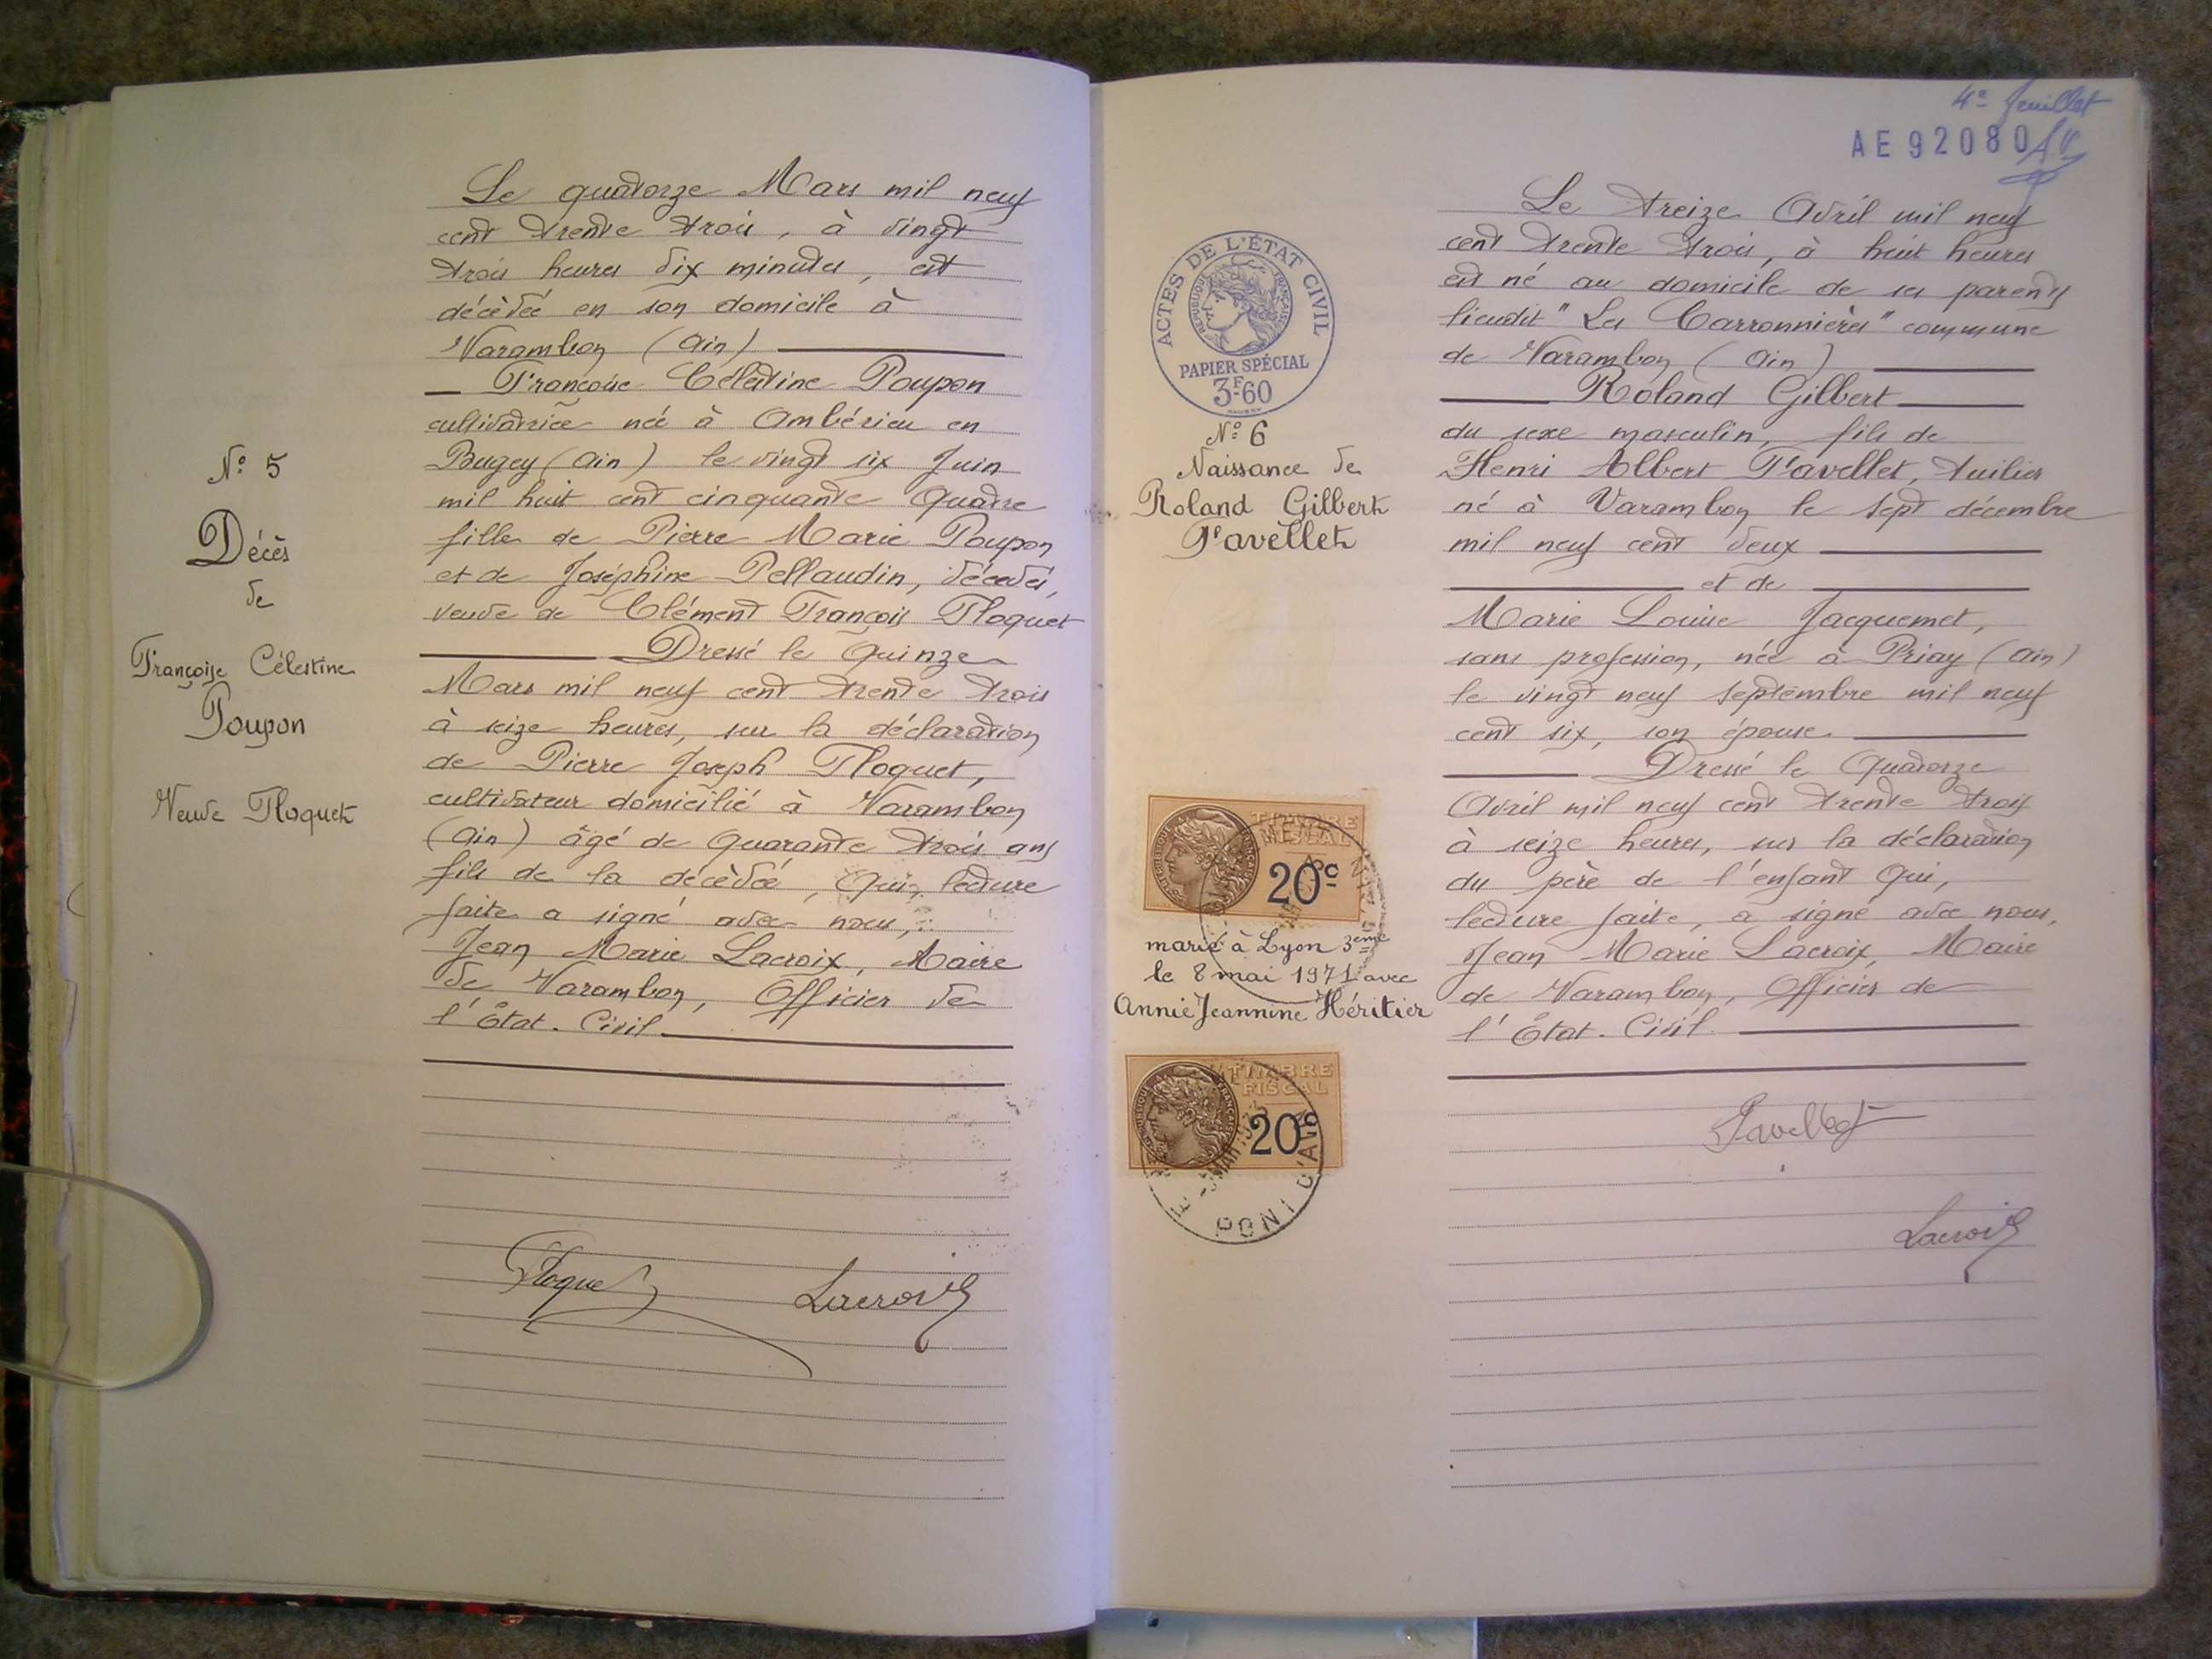 Le quatorze Mars mil neuf
cent trente trois, à vingt
trois heures dix minutes, est
décèdée en son domicile à
Varambon (Ain)
Françoise Célestine Poupon
cultivatrice née à Ambérieu en
Bugey (Ain) le vingt six Juin
mil huit cent cinquante quatre
fille de Pierre Marie Poupon
et de Joséphine Pellaudin, décèdés,
veuve de Clément François Floquet
Dressé le quinze
Mars mil neuf cent trente trois
à seize heures, sur la déclaration
de Pierre Joseph Floquet,
cultivateur domicilié à Varambon
(Ain) âgé de quarante trois ans
fils de la décèdée, qui, lecture
faite a signé avec nous,
Jean Marie Lacroix, Maire
de Varambon, Officier de
l'État-Civil
N° 5
Décès
de
Françoise Célestine
Poupon
Veuve Floquet
Floquet
Lacroix
4e feuillet
AE 92080
ACTES DE L'ÉTAT CIVIL
RÉPUBLIQUE FRANÇAISE
PAPIER SPÉCIAL
3F-60
N° 6
Naissance de
Roland Gilbert
Favellet
TIMBRE
FISCAL
20c
marié à Lyon 3ème
le 8 mai 1971 avec
Annie Jeannine Héritier
TIMBRE
FISCAL
20
PONT D'AIN
Le treize Avril mil neuf
cent trente trois, à huit heures
est né au domicile de ses parents
lieudit "Les Carronnières" commune
de Varambon (Ain)
Roland Gilbert
du sexe masculin, fils de
Henri Albert Favellet, tuilier
né à Varambon le sept décembre
mil neuf cent deux
et de
Marie Louise Jacquemet,
sans profession, née à Priay (Ain)
le vingt neuf septembre mil neuf
cent six, son épouse
Dressé le quatorze
Avril mil neuf cent trente trois
à seize heures, sur la déclaration
du père de l'enfant qui,
lecture faite, a signé avec nous,
Jean Marie Lacroix, Maire
de Varambon, Officier de
l'État-Civil
Favellet
Lacroix